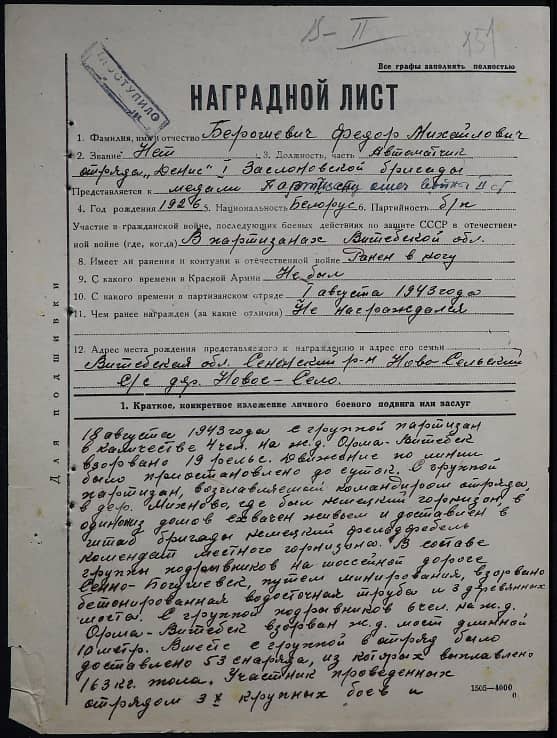 15-II 151
Все графы заполнять полностью
ПОСТУПИЛО
НАГРАДНОЙ ЛИСТ
1. Фамилия, имя и отчество Борошевич Федор Михайлович
2. Звание Нет 3. Должность, часть Автоматчик
отряда „Дениса" I Заслоновской бригады
Представляется к медали Партизану отеч. войны II ст
4. Год рождения 1926 5. Национальность Белорус 6. Партийность б/п
Участие в гражданской войне, последующих боевых действиях по защите СССР в отечествен-
ной войне (где, когда) В партизанах Витебской обл.
8. Имеет ли ранения и контузии в отечественной войне Ранен в ногу
9. С какого времени в Красной Армии Не был
10. С какого времени в партизанском отряде 1 августа 1943 года
11. Чем ранее награжден (за какие отличия) Не награждался
12. Адрес места рождения представляемого к награждению и адрес его семьи
Витебская обл. Сененский р-н Ново-Сельский
с/с дер. Новое-Село.
Для подшивки
1. Краткое, конкретное изложение личного боевого подвига или заслуг
18 августа 1943 года с группой партизан
в количестве 4 чел. на ж.д. Орша-Витебск
взорвано 19 рельс. Движение по линии
было приостановлено до суток. С группой
партизан, возглавляемой командиром отряда,
в дер. Михново, где был немецкий горнизон, в
одном из домов схвачен живьем и доставлен в
штаб бригады немецкий фельдфебель
комендант местного горнизона. В составе
группы подрывников на шоссейной дороге
Сенно-Богушевск, путем минирования, взорвано
бетонированная водосточная труба и 3 деревянных
моста. С группой подрывников 6 чел. на ж.д.
Орша-Витебск взорван ж.д. мост длинной
10 метр. Вместе с группой в отряд было
доставлено 53 снаряда, из которых выплавлено
163 кг. тола. Участник проведенных
отрядом 3х крупных боев и
1505—4000